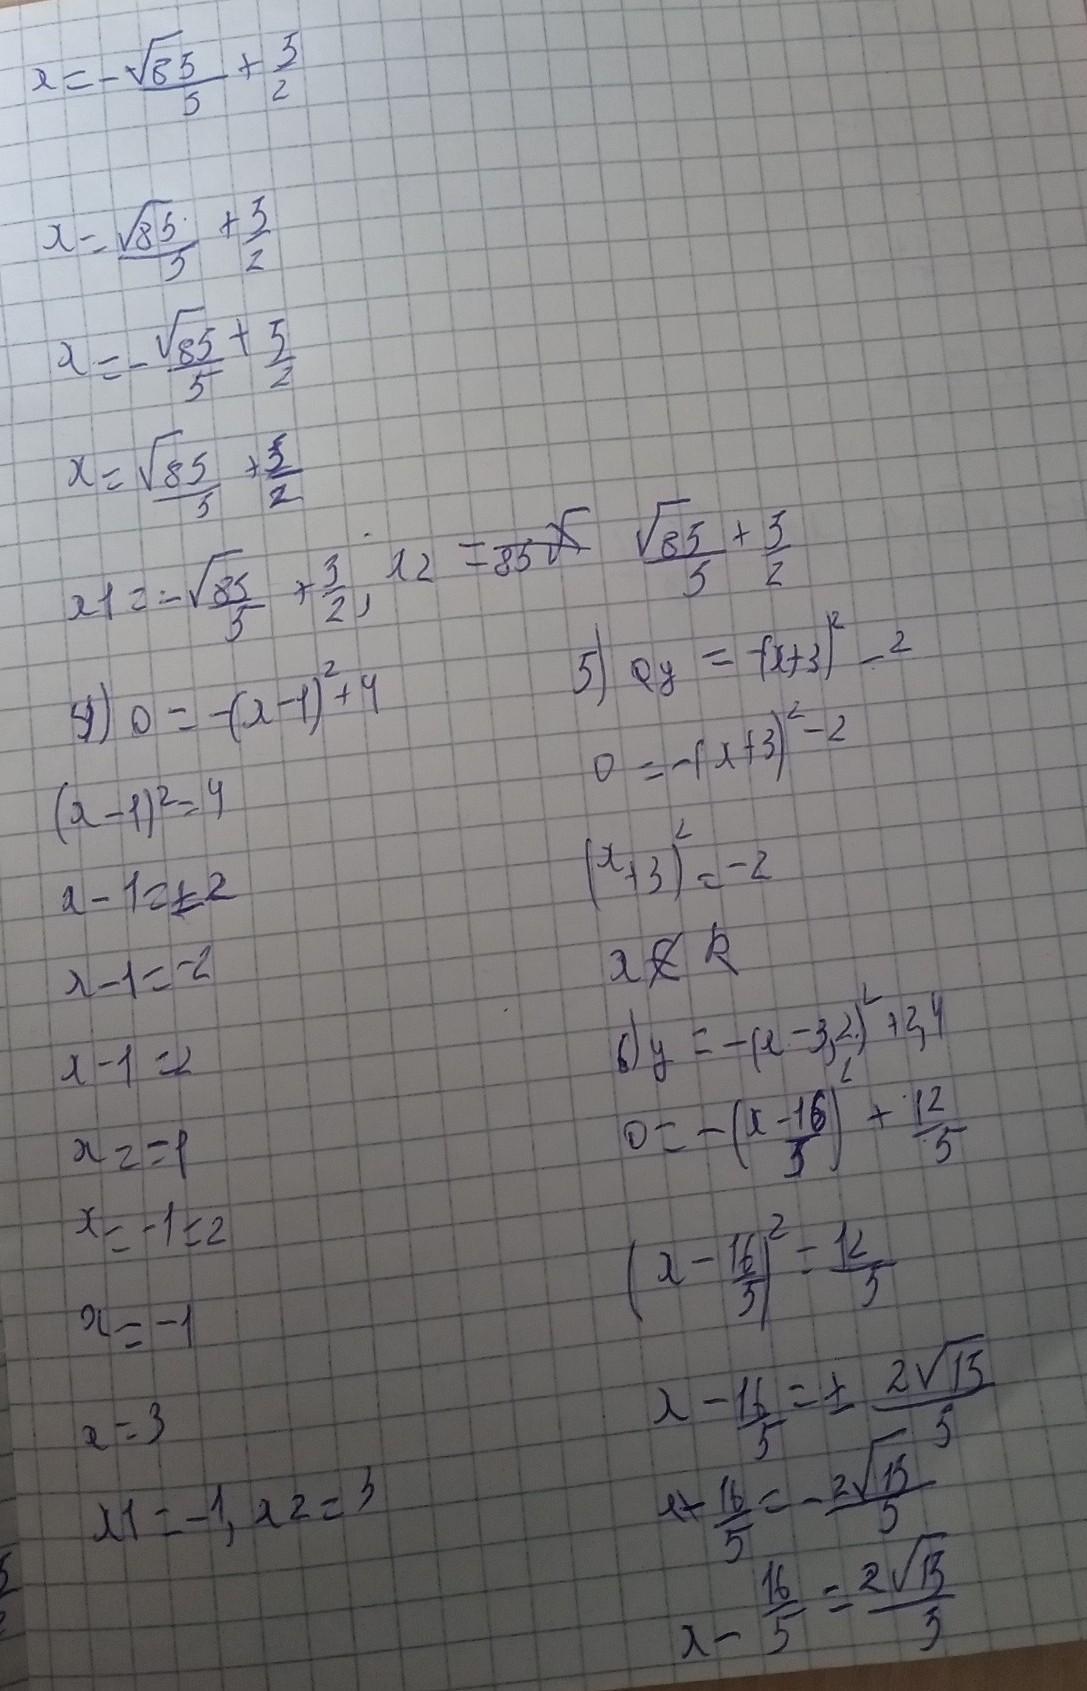 x = -√85/5 + 5/2
x = √85/5 + 5/2
x = -√85/5 + 5/2
x = √85/5 + 5/2
x1 = -√85/5 + 5/2, x2 = √85/5 + 5/2
4) 0 = -(x-1)² + 4
(x-1)² = 4
x - 1 = ±2
x - 1 = -2
x - 1 = 2
x = -1
x = -1 = 2
x = -1
x = 3
x1 = -1, x2 = 3
5) y = -(x+3)² - 2
0 = -(x+3)² - 2
(x+3)² = -2
x ∉ R
6) y = -(x - 3,2)² + 2,4
0 = -(x - 16/5)² + 12/5
(x - 16/5)² = 12/5
x - 16/5 = ± 2√15/5
x - 16/5 = - 2√15/5
x - 16/5 = 2√15/5